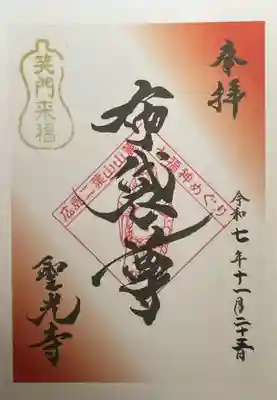 奉拝
令和七年十一月二十五日
布袋尊
広島二葉山山麓七福神めぐり
笑門来福
聖光寺